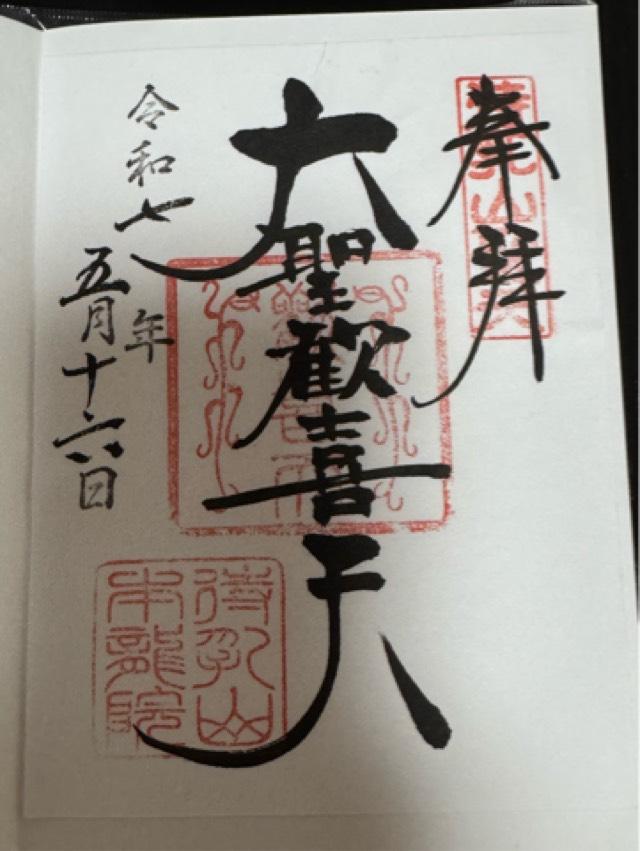 奉拝
大聖歓喜天
令和七年
五月十六日
待乳山
本龍院